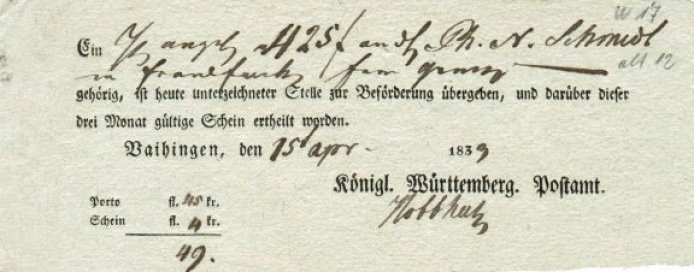 w 17
Ein 425 f Ph. N. Schmidt
in Frankfurt
all 12
gehörig, ist heute unterzeichneter Stelle zur Beförderung übergeben, und darüber dieser
drei Monat gültige Schein ertheilt worden.
Vaihingen, den 15 apr. 1833
Königl. Württemberg. Postamt.
Porto fl. 45 kr.
Schein fl. 4 kr.
49.